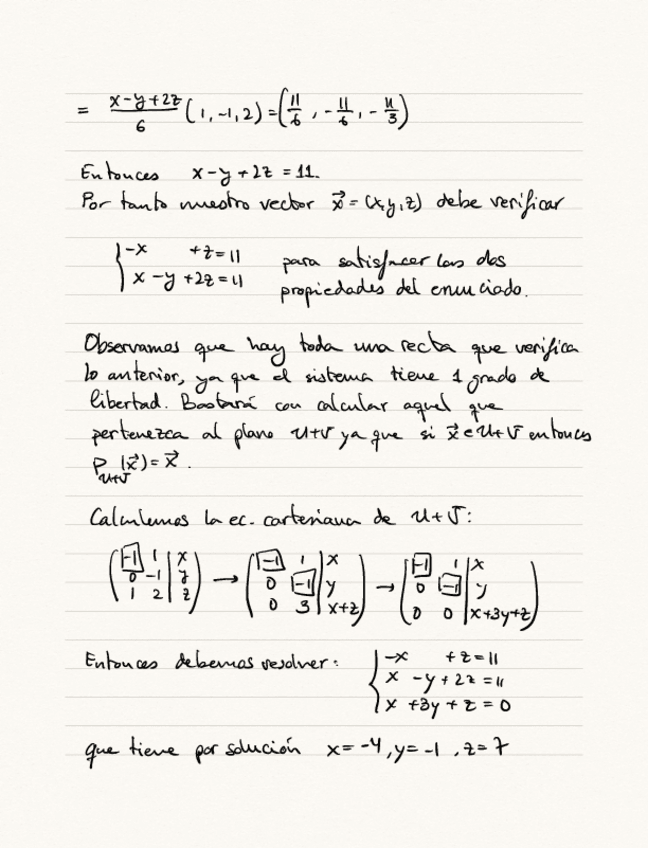 = x-y+2z/6 (1,-1,2) = (11/6, -11/6, -11/3)
Entonces x-y+2z = 11.
Por tanto nuestro vector x⃗ = (x,y,z) debe verificar
{ -x +z = 11 para satisfacer las dos
x -y +2z = 11 propiedades del enunciado.
Observamos que hay toda una recta que verifica
lo anterior, ya que el sistema tiene 1 grado de
libertad. Bastará con calcular aquel que
pertenezca al plano U+V ya que si x⃗ ∈ U+V entonces
P_{U+V}(x⃗) = x⃗.
Calculemos la ec. cartesiana de U+V:
(-1 1 | x; 0 -1 | y; 1 2 | z) → (-1 1 | x; 0 -1 | y; 0 3 | x+z) → (-1 1 | x; 0 -1 | y; 0 0 | x+3y+z)
Entonces debemos resolver: { -x +z = 11
x -y +2z = 11
x +3y +z = 0
que tiene por solución x = -4, y = -1, z = 7